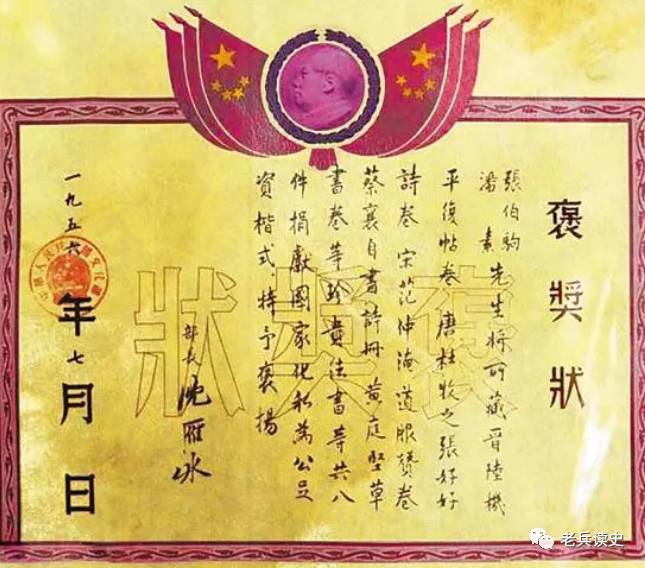 褒獎狀
張伯駒
潘素 先生將所藏晉陸機
平復帖卷唐杜牧之張好好
詩卷 宋范仲淹道服贊卷
蔡襄自書詩冊黃庭堅草
書卷等珍貴法書等共八
件捐獻國家化私為公足
資楷式,特予褒揚
褒獎狀
部長 沈雁冰
一九五六年七月 日
老兵读史